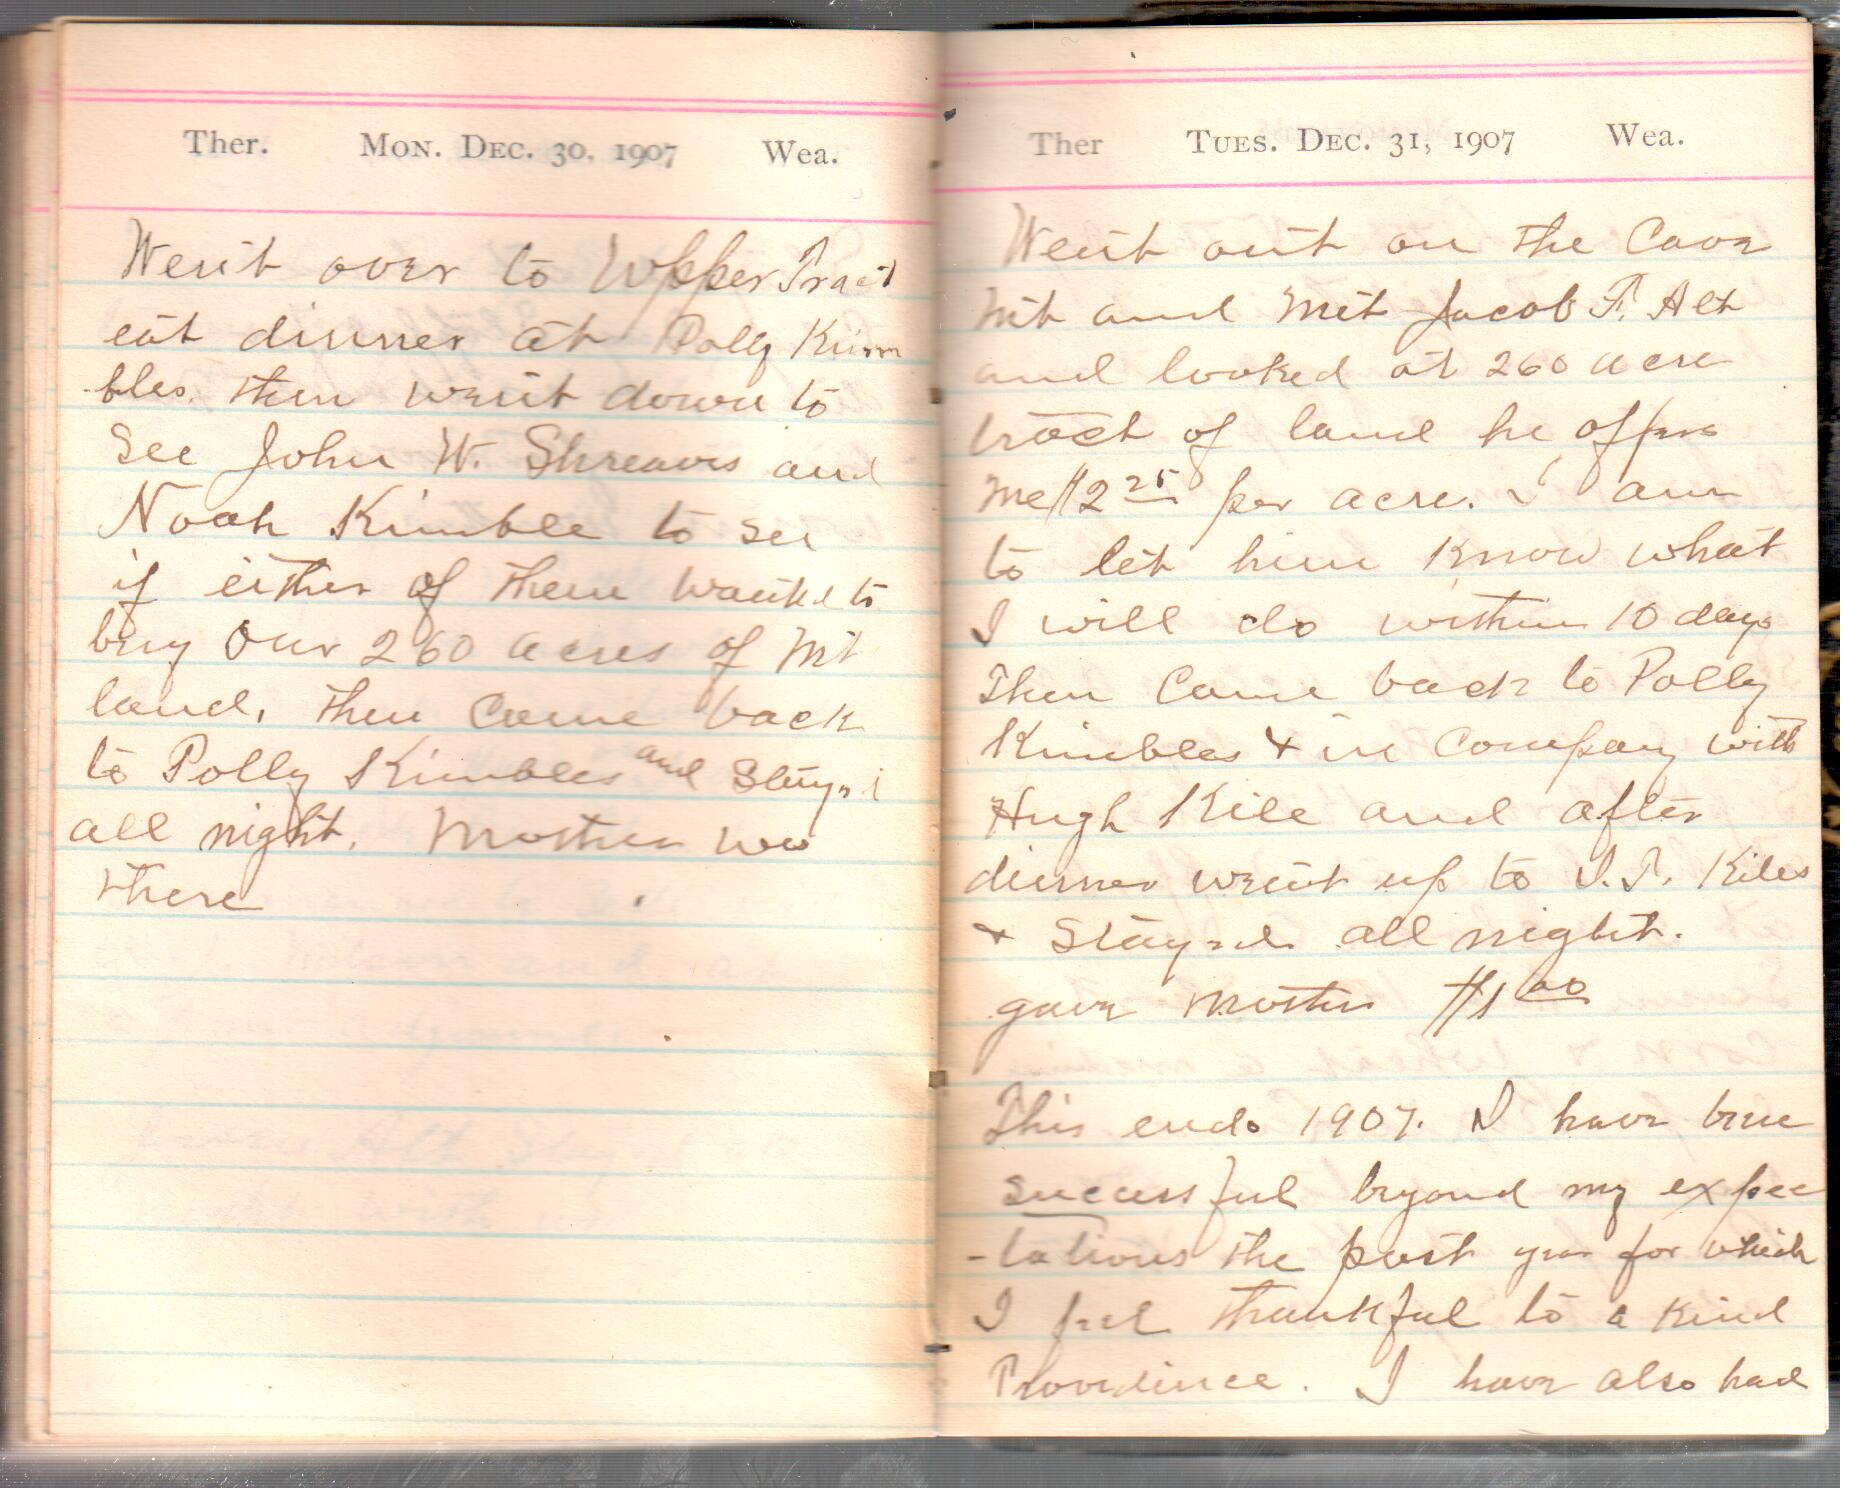 Ther. Mon. Dec. 30, 1907 Wea.
Went over to Upper Tract
eat dinner at Polly Kim
-bles. then went down to
see John W. Shreaves and
Noah Kimble to see
if either of them wanted to
buy our 260 acres of Mt
land, then came back
to Polly Kimbles and Stayed
all night. Mother was
there
Ther Tues. Dec. 31, 1907 Wea.
Went out on the Cave
Mt and met Jacob F. Alt
and looked at 260 acre
tract of land he offers
me $2 25 per acre. I am
to let him know what
I will do within 10 days
Then came back to Polly
Kimbles & in company with
Hugh Kile and after
dinner went up to I. T. Kiles
& Stayed all night.
gave Mother $1 00
This ends 1907. I have bene
successful beyond my expec
-tations the past year for which
I feel thankful to a kind
Providince. I have also had